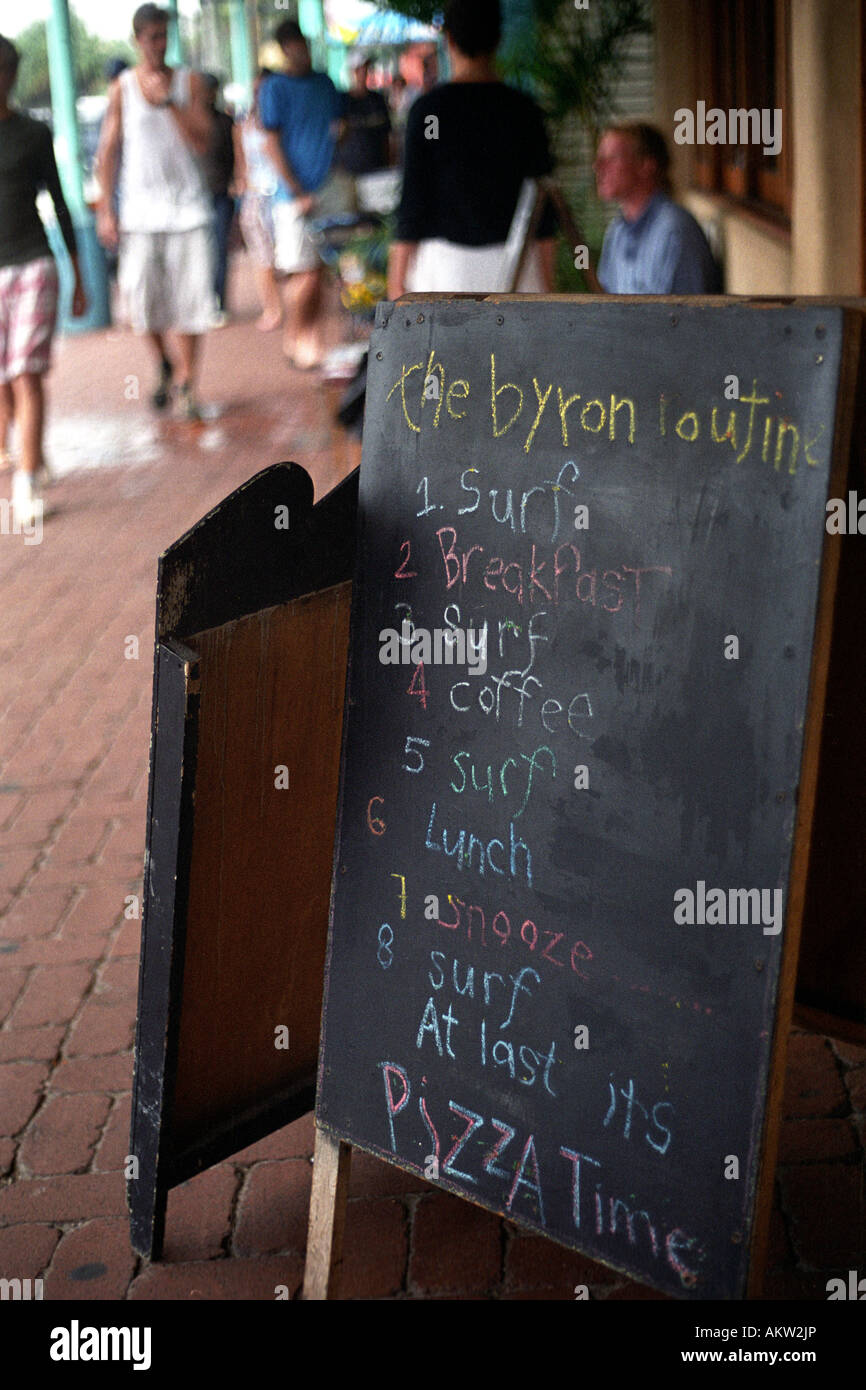 the byron routine
1. Surf
2 Breakfast
3 Surf
4 coffee
5 surf
6 Lunch
7 snooze......
8 surf
At last its
PIZZA Time
alamy
Image ID: AKW2JP
www.alamy.com